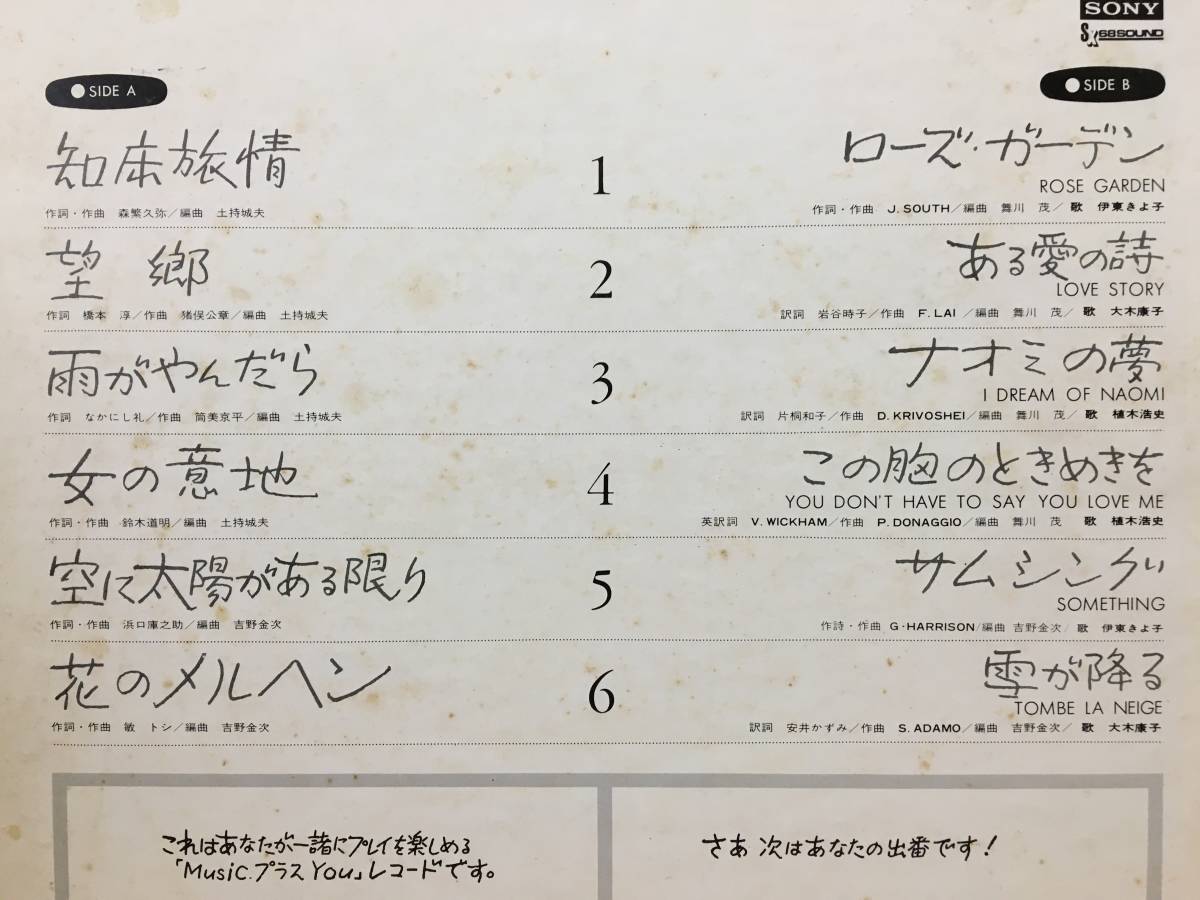 SONY
SX68SOUND
SIDE A
知床旅情
作詞・作曲 森繁久弥／編曲 土持城夫
望 郷
作詞 橋本 淳／作曲 猪俣公章／編曲 土持城夫
雨がやんだら
作詞 なかにし礼／作曲 筒美京平／編曲 土持城夫
女の意地
作詞・作曲 鈴木道明／編曲 土持城夫
空に太陽がある限り
作詞・作曲 浜口庫之助／編曲 吉野金次
花のメルヘン
作詞・作曲 敏 トシ／編曲 吉野金次
1
2
3
4
5
6
SIDE B
ローズ・ガーデン
ROSE GARDEN
作詞・作曲 J. SOUTH／編曲 舞川 茂／歌 伊東きよ子
ある愛の詩
LOVE STORY
訳詞 岩谷時子／作曲 F. LAI／編曲 舞川 茂／歌 大木康子
ナオミの夢
I DREAM OF NAOMI
訳詞 片桐和子／作曲 D. KRIVOSHEI／編曲 舞川 茂／歌 植木浩史
この胸のときめきを
YOU DON'T HAVE TO SAY YOU LOVE ME
英訳詞 V. WICKHAM／作曲 P. DONAGGIO／編曲 舞川 茂 歌 植木浩史
サムシング
SOMETHING
作詩・作曲 G・HARRISON/編曲 吉野金次／歌 伊東きよ子
雪が降る
TOMBE LA NEIGE
訳詞 安井かずみ／作曲 S. ADAMO／編曲 吉野金次／歌 大木康子
これはあなたが一諸にプレイを楽しめる
「Music.プラス You」レコードです。
さあ 次はあなたの出番です！